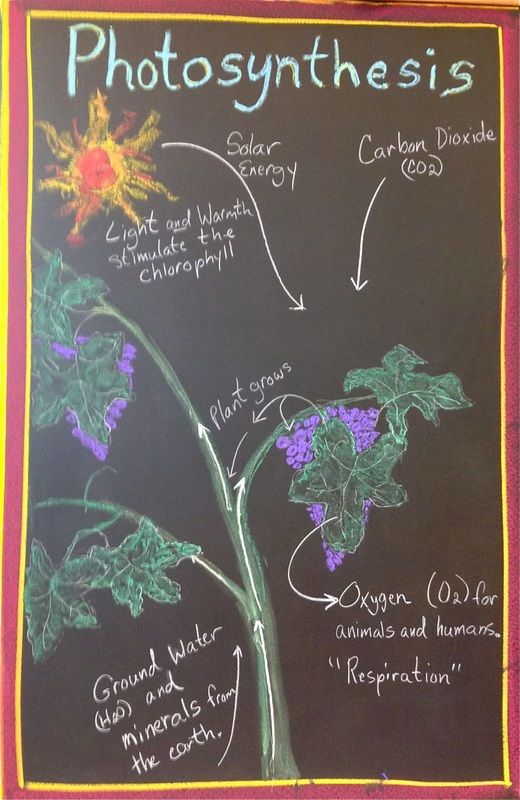 Photosynthesis
Solar
Energy
Carbon Dioxide
(CO2)
Light and Warmth
stimulate the
chlorophyll
Plant grows
Oxygen (O2) for
animals and humans.
"Respiration"
Ground Water
(H2O) and
minerals from
the earth.